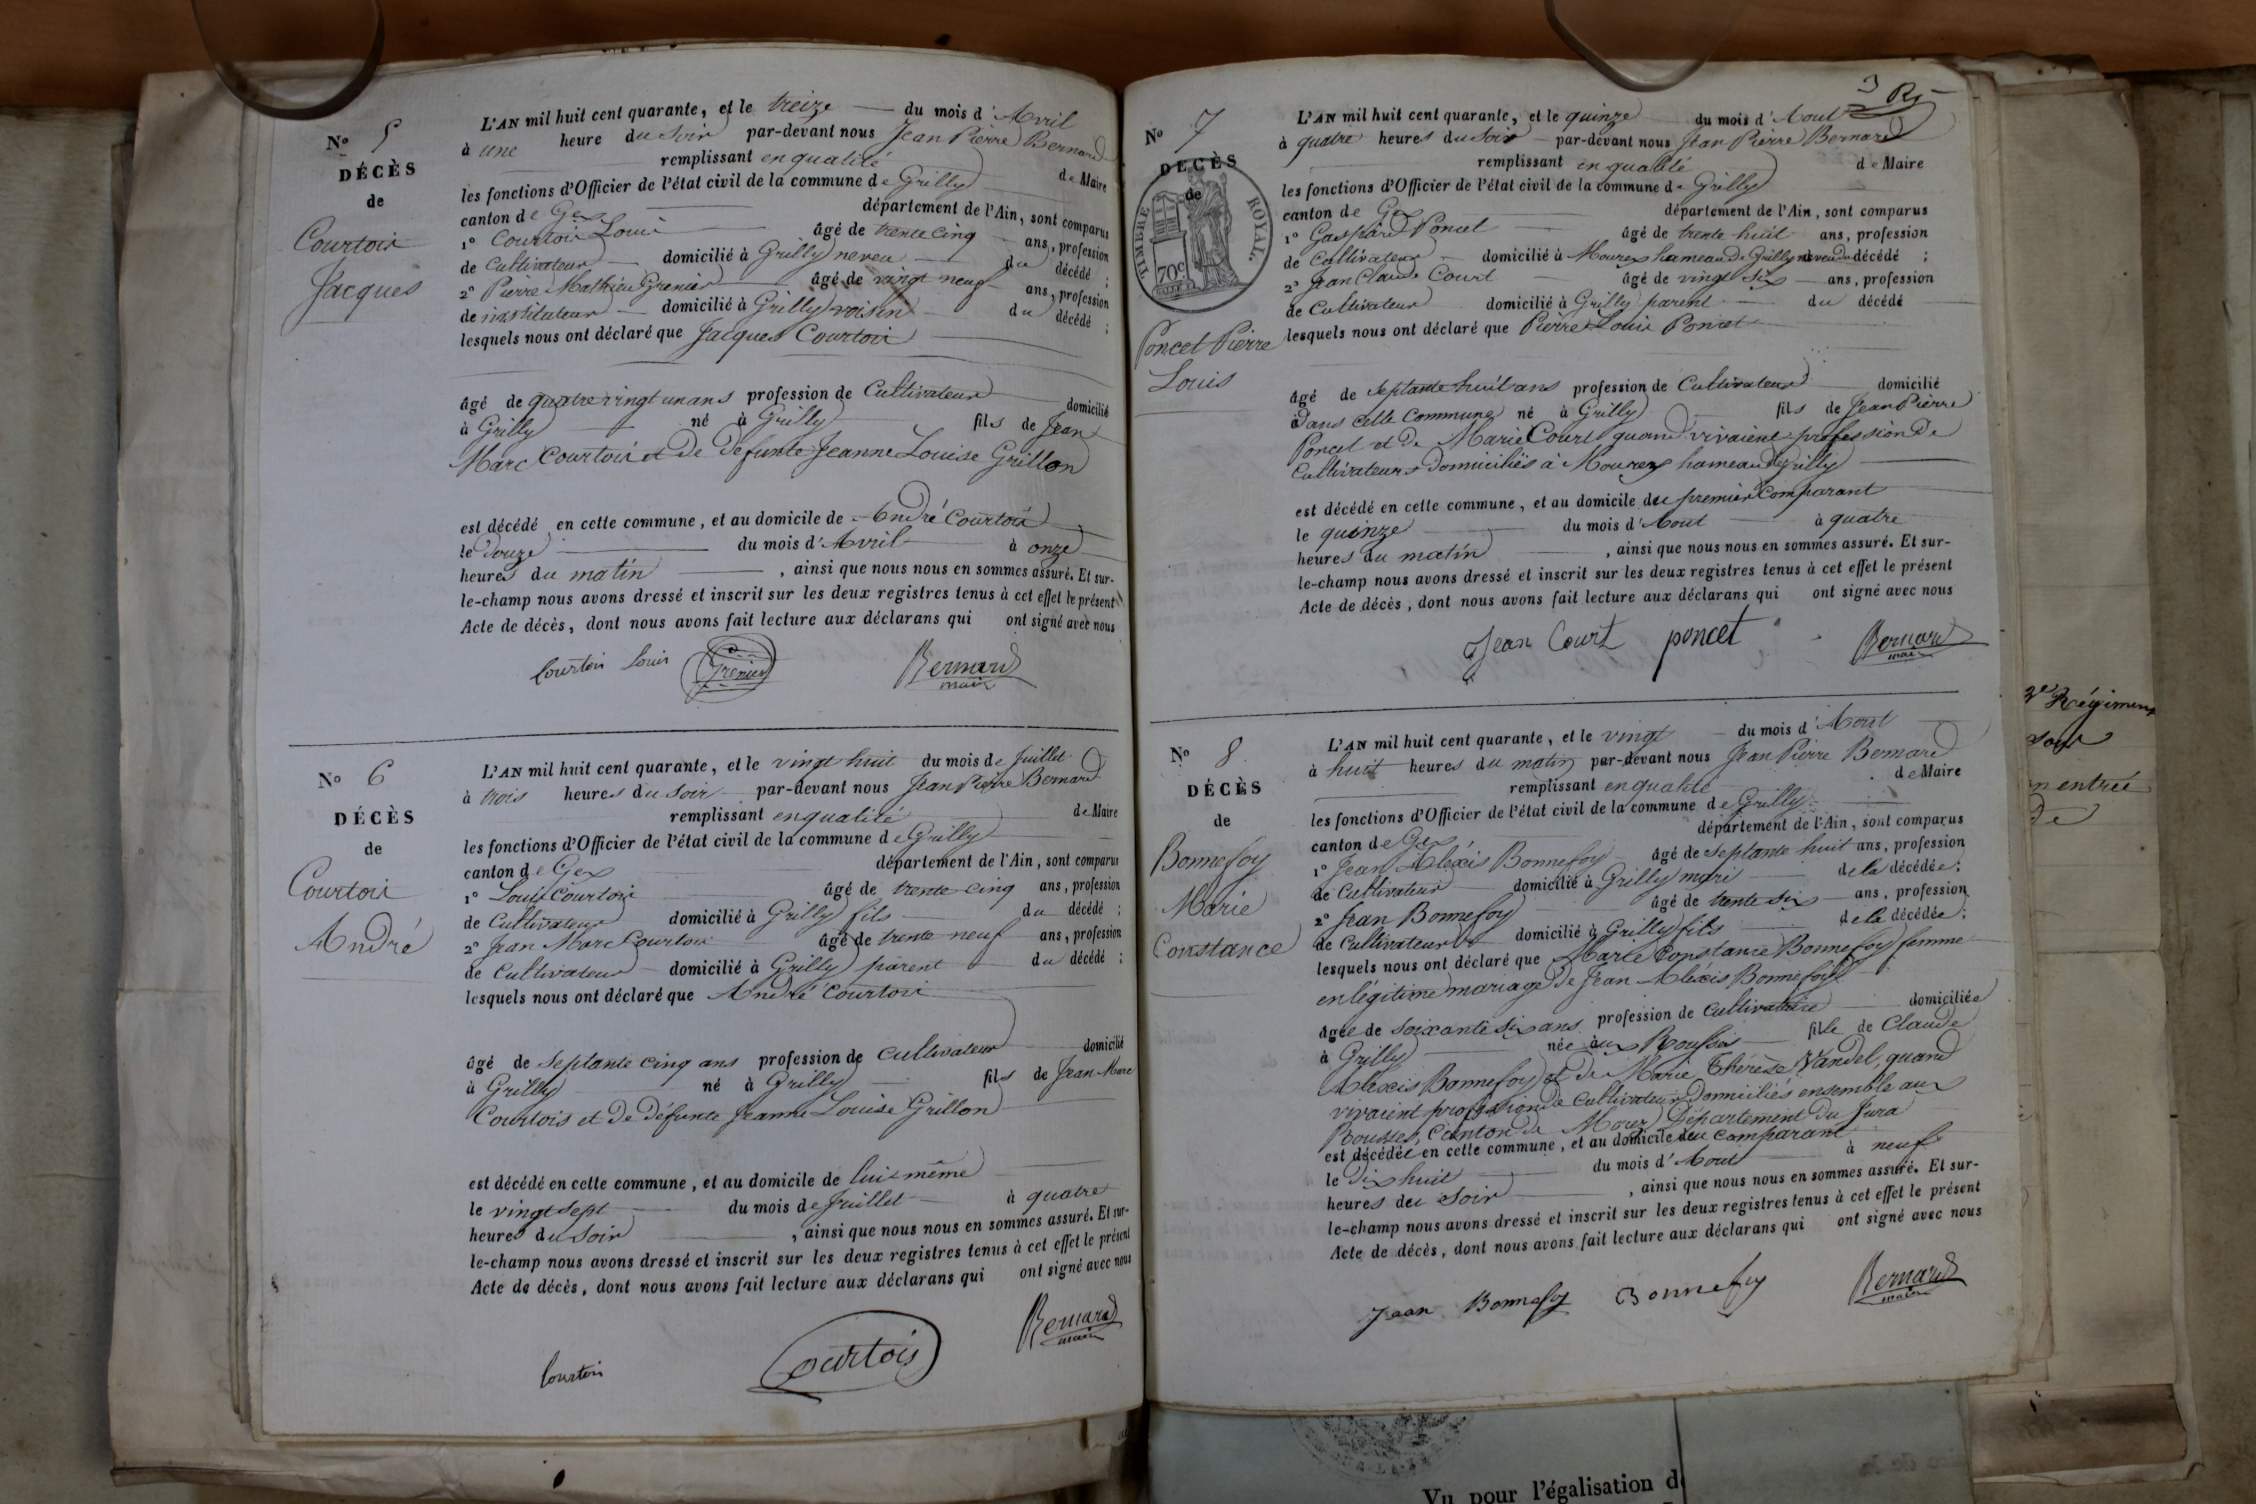 N° 5
DÉCÈS
de
Courtois
Jacques
L'AN mil huit cent quarante, et le treize du mois d'Avril
à une heure du soir par-devant nous Jean Pierre Bernard
remplissant en qualité de Maire
les fonctions d'Officier de l'état civil de la commune de Grilly
canton de Gex département de l'Ain, sont comparus
1° Courtois Louis âgé de trente cinq ans, profession
de Cultivateur domicilié à Grilly neveu du décédé ;
2° Pierre Mathieu Grenier âgé de vingt neuf ans, profession
de instituteur domicilié à Grilly voisin du décédé ;
lesquels nous ont déclaré que Jacques Courtois
âgé de quatre vingt un ans profession de Cultivateur domicilié
à Grilly né à Grilly fils de Jean
Marc Courtois et de defunte Jeanne Louise Grillon
est décédé en cette commune, et au domicile de André Courtois
le Douze du mois d'Avril à onze
heures du matin , ainsi que nous nous en sommes assuré. Et sur-
le-champ nous avons dressé et inscrit sur les deux registres tenus à cet effet le présent
Acte de décès, dont nous avons fait lecture aux déclarans qui ont signé avec nous
Courtois Louis Grenier Bernard
maire
N° 6
DÉCÈS
de
Courtois
André
L'AN mil huit cent quarante, et le vingt huit du mois de Juillet
à trois heures du soir par-devant nous Jean Pierre Bernard
remplissant en qualité de Maire
les fonctions d'Officier de l'état civil de la commune de Grilly
canton de Gex département de l'Ain, sont comparus
1° Louis Courtois âgé de trente cinq ans, profession
de Cultivateur domicilié à Grilly fils du décédé ;
2° Jean Marc Courtois âgé de trente neuf ans, profession
de Cultivateur domicilié à Grilly parent du décédé ;
lesquels nous ont déclaré que André Courtois
âgé de Septante cinq ans profession de cultivateur domicilié
à Grilly né à Grilly fils de Jean Marc
Courtois et de Défunte Jeanne Louise Grillon
est décédé en cette commune, et au domicile de lui même
le vingt sept du mois de Juillet à quatre
heures du soir , ainsi que nous nous en sommes assuré. Et sur-
le-champ nous avons dressé et inscrit sur les deux registres tenus à cet effet le présent
Acte de décès, dont nous avons fait lecture aux déclarans qui ont signé avec nous
Courtois Courtois Bernard
maire
N° 7
DECÈS
de
TIMBRE ROYAL
70c
Poncet Pierre
Louis
L'AN mil huit cent quarante, et le quinze du mois d'Aout
à quatre heures du soir par-devant nous Jean Pierre Bernard
remplissant en qualité de Maire
les fonctions d'Officier de l'état civil de la commune de Grilly
canton de Gex département de l'Ain, sont comparus
1° Gaspard Poncet âgé de trente huit ans, profession
de Cultivateur domicilié à Mourex hameau de Grilly neveu du décédé ;
2° Jean Claude Court âgé de vingt six ans, profession
de Cultivateur domicilié à Grilly parent du décédé
lesquels nous ont déclaré que Pierre Louis Poncet
âgé de Septante huit ans profession de Cultivateur domicilié
dans cette Commune né à Grilly fils de Jean Pierre
Poncet et de Marie Court quand vivaient profession de
Cultivateurs Domiciliés à Mourex hameau de Grilly
est décédé en cette commune, et au domicile du premier comparant
le quinze du mois d'Aout à quatre
heures du matin , ainsi que nous nous en sommes assuré. Et sur-
le-champ nous avons dressé et inscrit sur les deux registres tenus à cet effet le présent
Acte de décès, dont nous avons fait lecture aux déclarans qui ont signé avec nous
Jean Court poncet Bernard
maire
N° 8
DÉCÈS
de
Bonnefoy
Marie
Constance
L'AN mil huit cent quarante, et le vingt du mois d'Aout
à huit heures du matin par-devant nous Jean Pierre Bernard
remplissant en qualité de Maire
les fonctions d'Officier de l'état civil de la commune de Grilly
canton de Gex département de l'Ain, sont comparus
1° Jean Alexis Bonnefoy âgé de septante huit ans, profession
de Cultivateur domicilié à Grilly mari de la décédée ;
2° Jean Bonnefoy âgé de trente six ans, profession
de Cultivateur domicilié à Grilly fils de la décédée ;
lesquels nous ont déclaré que Marie Constance Bonnefoy femme
en légitime mariage de Jean Alexis Bonnefoy
âgée de soixante six ans profession de Cultivatrice domiciliée
à Grilly née aux Rousses fille de Claude
Alexis Bonnefoy et de Marie Thérèse Vandel, quand
vivaient profession de Cultivateurs Domiciliés ensemble aux
Rousses, Canton de Morez Département du Jura
est décédée en cette commune, et au domicile du comparant
le Dix huit du mois d'Aout à neuf
heures du soir , ainsi que nous nous en sommes assuré. Et sur-
le-champ nous avons dressé et inscrit sur les deux registres tenus à cet effet le présent
Acte de décès, dont nous avons fait lecture aux déclarans qui ont signé avec nous
Jean Bonnefoy Bonnefoy Bernard
maire
Régiment
entrée
de
Vu pour l'égalisation d